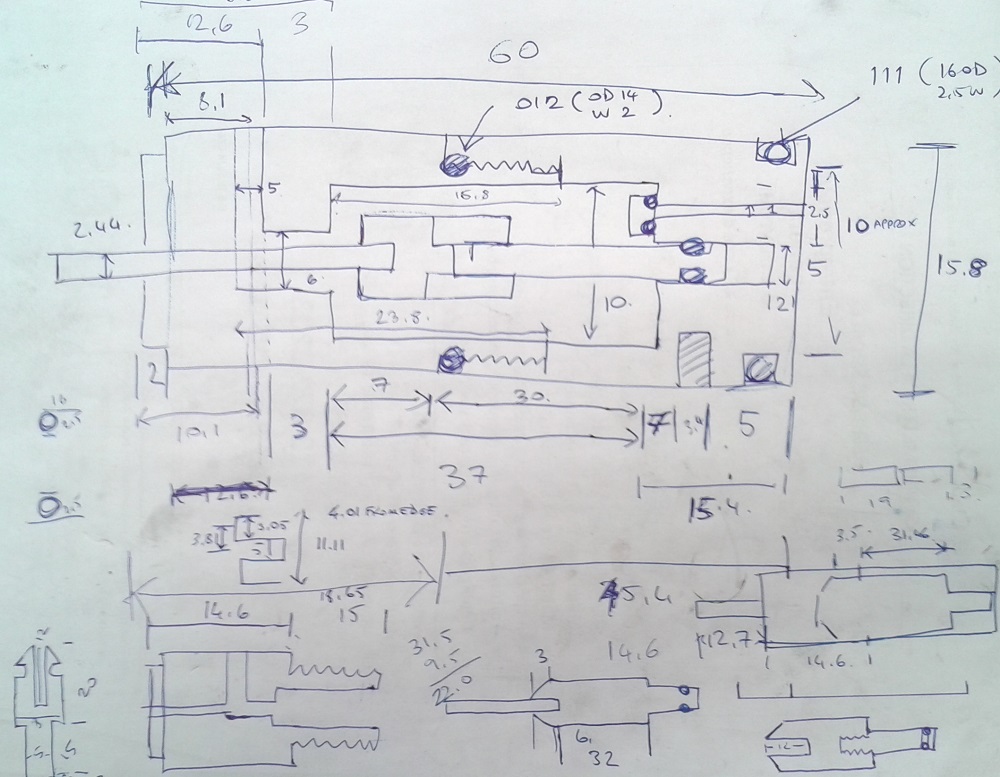 12,6 3
60
111 (16OD
2,5W)
012 (OD 14
W 2).
8,1
5
2.44.
16.8
1
2.5
10 APPROX
5
15.8
6
10.
12
23.8.
2
7
30.
10.1
3
7
3.9
5
37
15.4.
19
4.01 FROM EDGE.
3.81
3.05
5
11.11
3.5. 31.16
18.65
14.6
15
12.7
14.6
31.5
9.5
22.0
3
14.6
6.
32